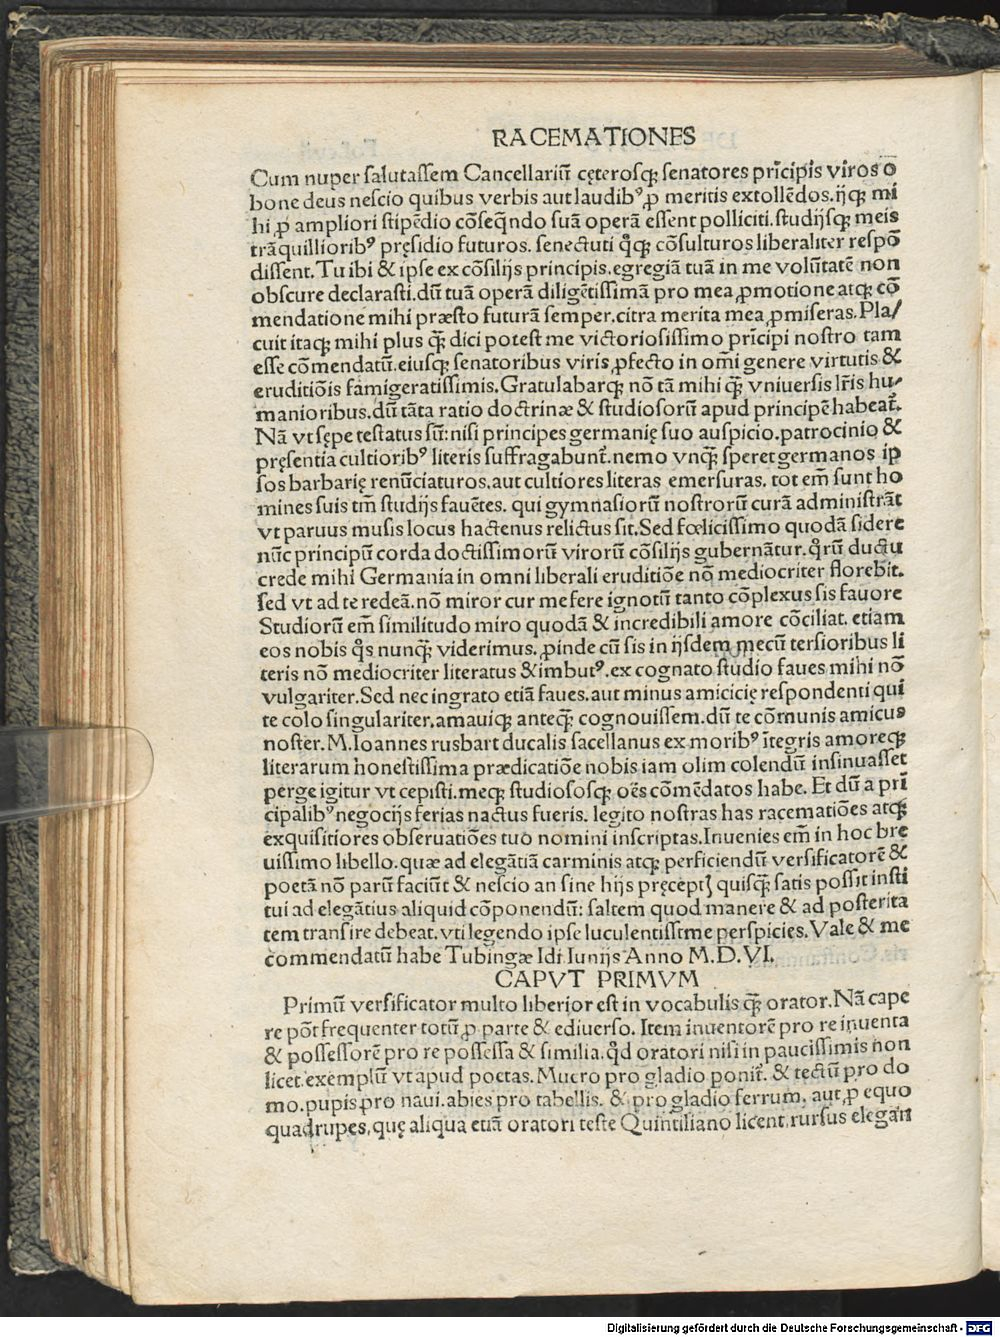 RACEMATIONES
Cum nuper salutassem Cancellariū cęterosqꝫ senatores prīcipis viros o
bone deus nescio quibus verbis aut laudibꝰ ꝓ meritis extollēdos. ijqꝫ mi
hi ꝓ ampliori stipēdio cōseqñdo suā operā essent polliciti. studijsqꝫ meis
trāquillioribꝰ pręsidio futuros. senectuti q̊qꝫ cōsulturos liberaliter respō
dissent. Tu ibi & ipse ex cōsilijs principis. egregiā tuā in me volūtatē non
obscure declarasti. dū tuā operā diligētissimā pro mea ꝓmotione atqꝫ cō
mendatione mihi præsto futurā semper. citra merita mea ꝓmiseras. Pla/
cuit itaqꝫ mihi plus qꝫ̄ dici potest me victoriosissimo prīcipi nostro tam
esse cōmendatū. eiusqꝫ senatoribus viris ꝓfecto in om̄i genere virtutis &
eruditiōis famigeratissimis. Gratulabarqꝫ nō tā mihi qꝫ̄ vniuersis lr̄is hu/
manioribus. dū tāta ratio doctrinæ & studiosorū apud principē habeat̄.
Nā vt sępe testatus sū: nisi principes germanię suo auspicio. patrocinio &
pręsentia cultioribꝰ literis suffragabunt̄. nemo vnqꝫ̄ speret germanos ip
sos barbarię renūciaturos. aut cultiores literas emersuras. tot em̄ sunt ho
mines suis tm̄ studijs fauētes. qui gymnasiorū nostrorū curā administrāt
vt paruus musis locus hactenus relictus sit. Sed fœlicissimo quodā sidere
nūc principū corda doctissimorū virorū cōsilijs gubernātur. q̊rū ductu
crede mihi Germania in omni liberali eruditiōe nō mediocriter florebit.
sed vt ad te redeā. nō miror cur me fere ignotū tanto cōplexus sis fauore
Studiorū em̄ similitudo miro quodā & incredibili amore cōciliat. etiam
eos nobis q̊s nunqꝫ̄ viderimus. ꝓinde cū sis in ijsdem mecū tersioribus li
teris nō mediocriter literatus & imbutꝰ. ex cognato studio faues mihi nō
vulgariter. Sed nec ingrato etiā faues. aut minus amicicię respondenti qui
te colo singulariter, amauiqꝫ anteqꝫ̄ cognouissem. dū te cōmunis amicus
noster. M. Ioannes rusbart ducalis sacellanus ex moribꝰ ītegris amoreqꝫ
literarum honestissima prædicatiōe nobis iam olim colendū insinuasset
perge igitur vt cepisti. meqꝫ studiososqꝫ oēs cōmēdatos habe. Et dū a pri
cipalibꝰ negocijs ferias nactus fueris. legito nostras has racematiōes atqꝫ
exquisitiores obseruatiōes tuo nomini inscriptas. Inuenies em̄ in hoc bre
uissimo libello. quæ ad elegātiā carminis atqꝫ perficiendū versificatorē &
poetā nō parū faciūt & nescio an sine hijs pręceptꝭ quisqꝫ̄ satis possit insti
tui ad elegātius aliquid cōponendū: saltem quod manere & ad posterita
tem transire debeat. vti legendo ipse luculentissime perspicies. Vale & me
commendatū habe Tubingæ Idi. Iunijs Anno M. D. VI.
CAPVT PRIMVM
Primū versificator multo liberior est in vocabulis qꝫ̄ orator. Nā cape
re pōt frequenter totū ꝓ parte & ediuerso. Item inuentorē pro re inuenta
& possessorē pro re possessa & similia. q̊d oratori nisi in paucissimis non
licet. exemplū vt apud poetas. Mucro pro gladio ponit̄. & tectū pro do
mo. pupis pro naui. abies pro tabellis. & pro gladio ferrum. aut ꝓ equo
quadrupes, quę aliqua etiā oratori teste Quintiliano licent. rursus elegan
Digitalisierung gefördert durch die Deutsche Forschungsgemeinschaft - DFG